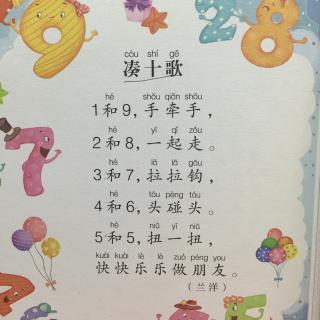 còu shí gē
凑十歌
hé shǒu qiān shǒu
1和9，手牵手，
hé yī qǐ zǒu
2和8，一起走。
hé lā lā gōu
3和7，拉拉钩，
hé tóu pèng tóu
4和6，头碰头，
hé niǔ yī niǔ
5和5，扭一扭，
kuài kuài lè lè zuò péng you
快快乐乐做朋友。
（兰洋）